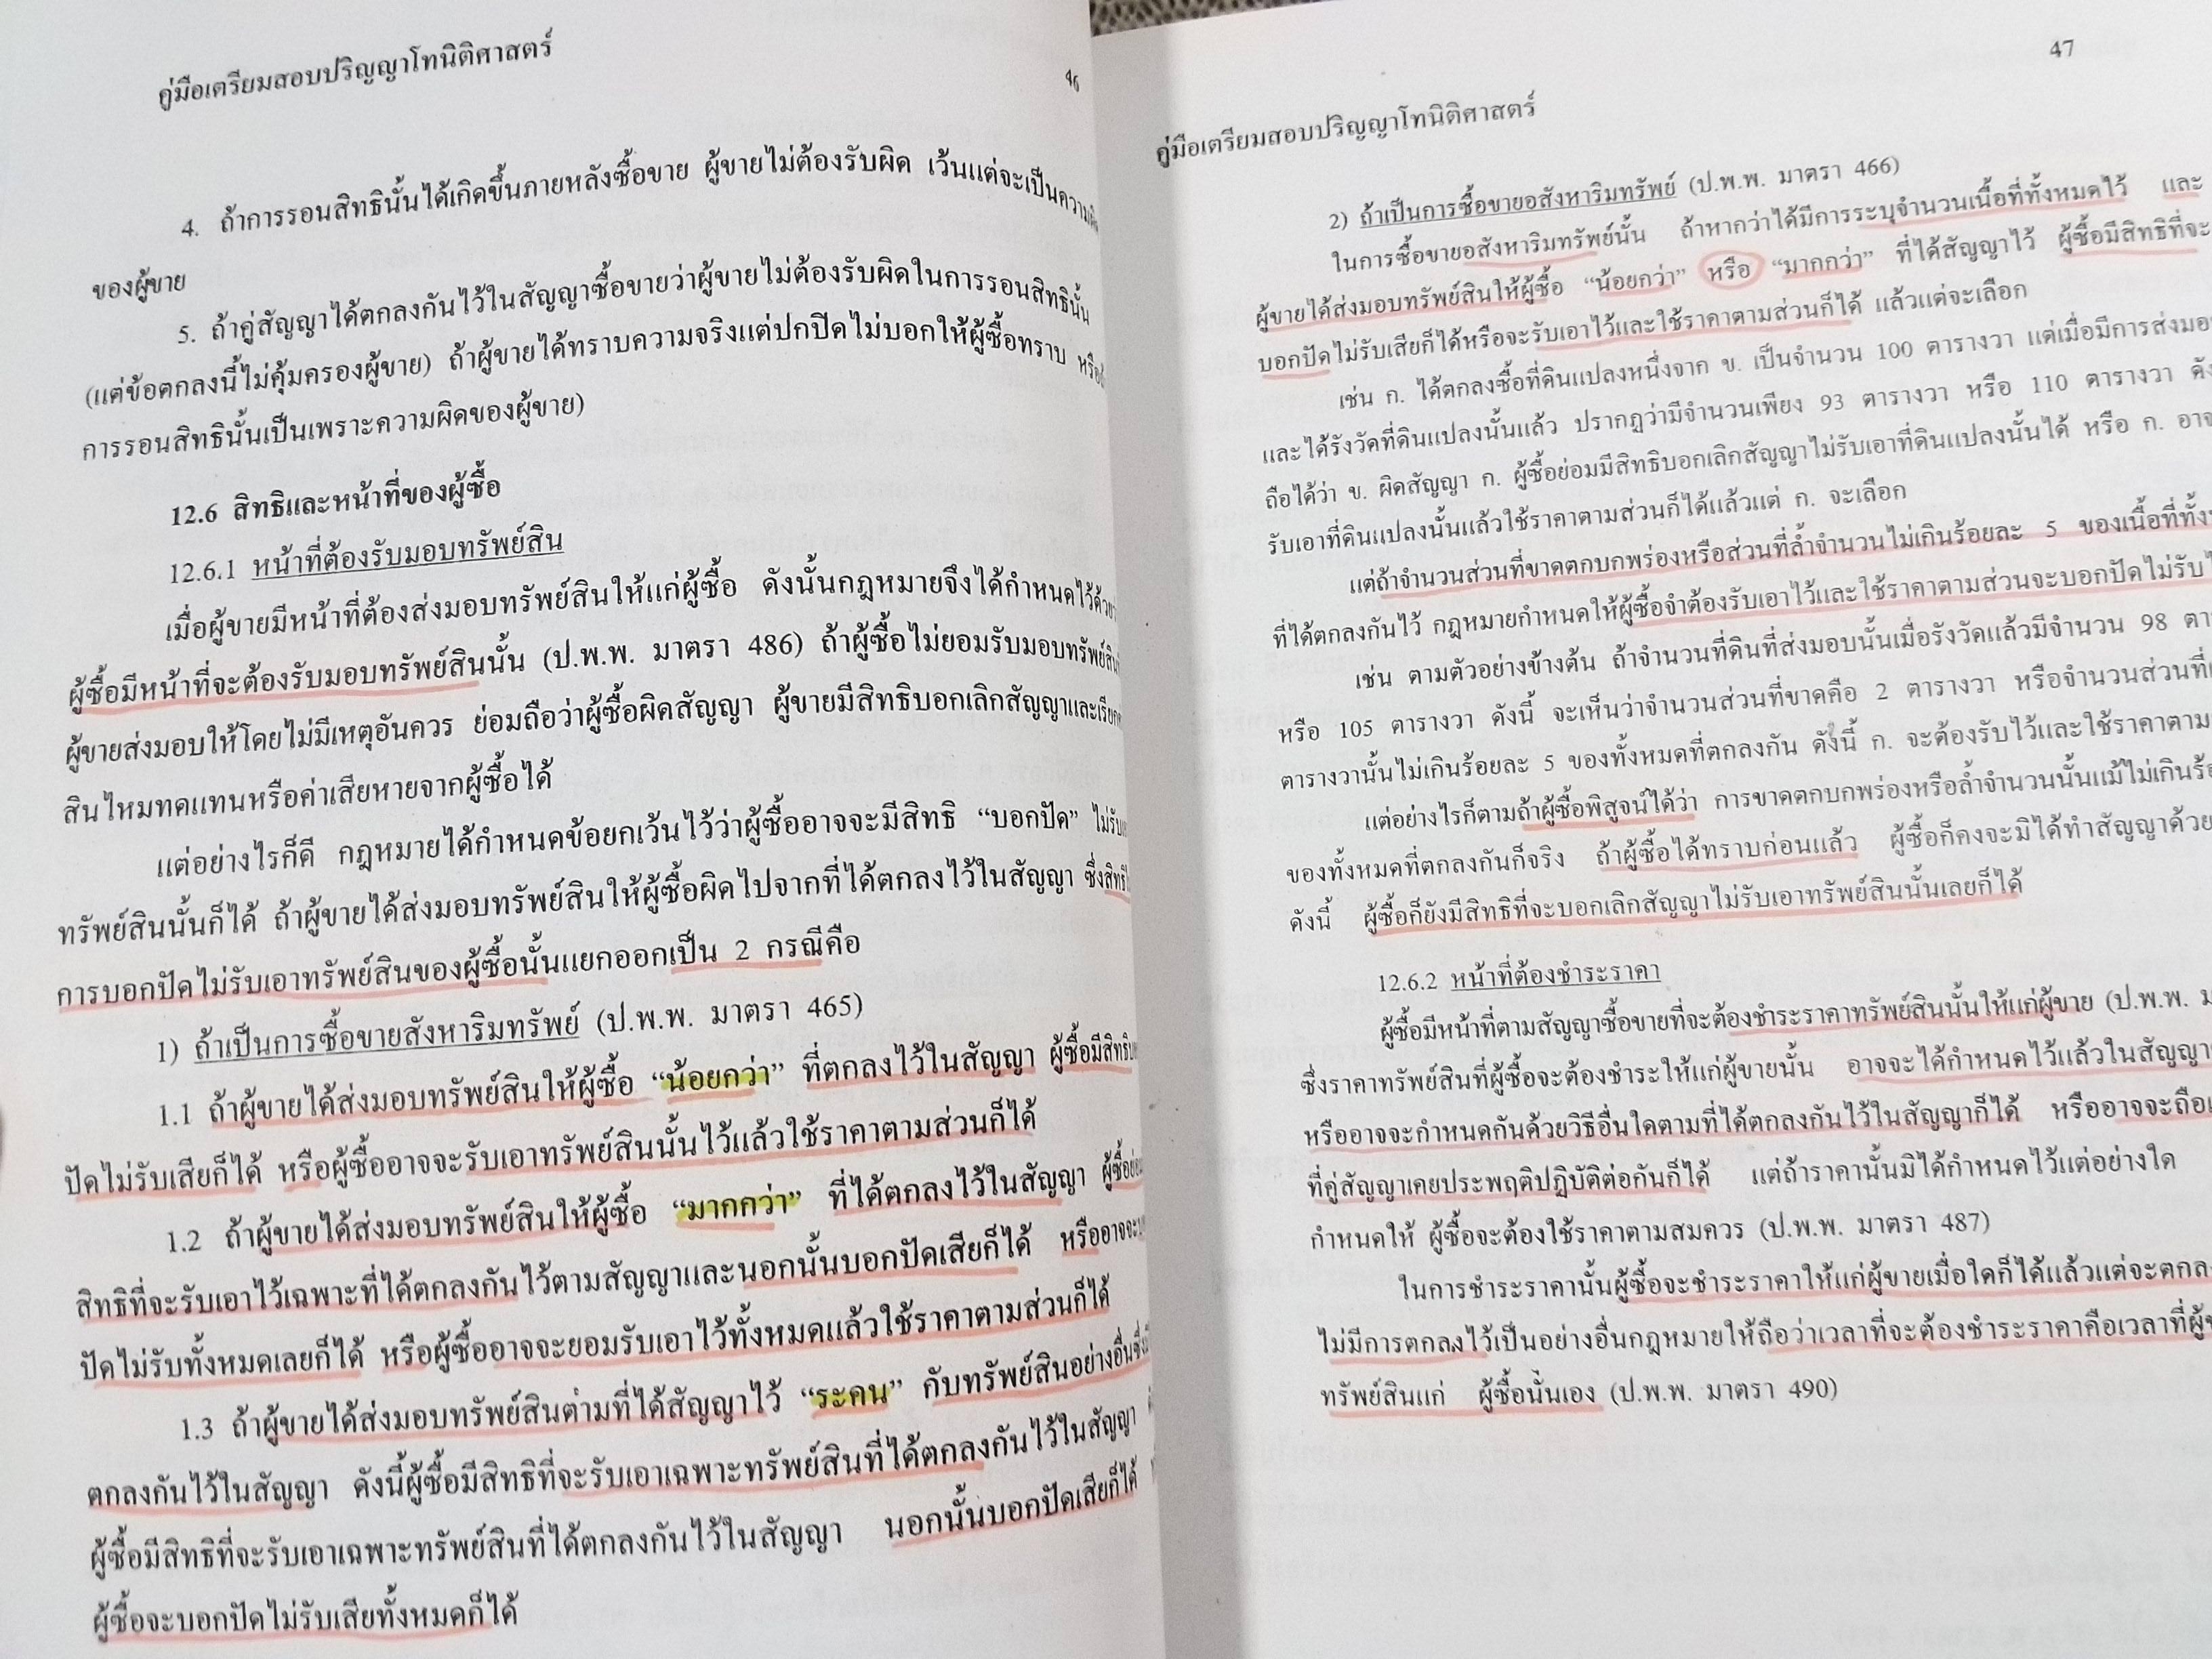 คู่มือเตรียมสอบปริญญาโทนิติศาสตร์
46
4. ถ้าการรอนสิทธินั้นได้เกิดขึ้นภายหลังซื้อขาย ผู้ขายไม่ต้องรับผิด เว้นแต่จะเป็นความผิด
ของผู้ขาย
5. ถ้าคู่สัญญาได้ตกลงกันไว้ในสัญญาซื้อขายว่าผู้ขายไม่ต้องรับผิดในการรอนสิทธินั้น
(แต่ข้อตกลงนี้ไม่คุ้มครองผู้ขาย) ถ้าผู้ขายได้ทราบความจริงแต่ปกปิดไม่บอกให้ผู้ซื้อทราบ
การรอนสิทธินั้นเป็นเพราะความผิดของผู้ขาย)
12.6 สิทธิและหน้าที่ของผู้ซื้อ
12.6.1 หน้าที่ต้องรับมอบทรัพย์สิน
เมื่อผู้ขายมีหน้าที่ต้องส่งมอบทรัพย์สินให้แก่ผู้ซื้อ ดังนั้นกฎหมายจึงได้กำหนดไว้
ผู้ซื้อมีหน้าที่จะต้องรับมอบทรัพย์สินนั้น (ป.พ.พ. มาตรา 486) ถ้าผู้ซื้อไม่ยอมรับมอบทรัพย์สิน
ผู้ขายส่งมอบให้โดยไม่มีเหตุอันควร ย่อมถือว่าผู้ซื้อผิดสัญญา ผู้ขายมีสิทธิบอกเลิกสัญญาและ
สินไหมทดแทนหรือค่าเสียหายจากผู้ซื้อได้
แต่อย่างไรก็ดี กฎหมายได้กำหนดข้อยกเว้นไว้ว่าผู้ซื้ออาจจะมีสิทธิ “บอกปัด”
ทรัพย์สินนั้นก็ได้ ถ้าผู้ขายได้ส่งมอบทรัพย์สินให้ผู้ซื้อผิดไปจากที่ได้ตกลงไว้ในสัญญา
การบอกปัดไม่รับเอาทรัพย์สินของผู้ซื้อนั้นแยกออกเป็น 2 กรณีคือ
1) ถ้าเป็นการซื้อขายสังหาริมทรัพย์ (ป.พ.พ. มาตรา 465)
1.1 ถ้าผู้ขายได้ส่งมอบทรัพย์สินให้ผู้ซื้อ “น้อยกว่า” ที่ตกลงไว้ในสัญญา
ปัดไม่รับเสียก็ได้ หรือผู้ซื้ออาจจะรับเอาทรัพย์สินนั้นไว้แล้วใช้ราคาตามส่วนก็ได้
1.2 ถ้าผู้ขายได้ส่งมอบทรัพย์สินให้ผู้ซื้อ “มากกว่า” ที่ได้ตกลงไว้ในสัญญา
สิทธิที่จะรับเอาไว้เฉพาะที่ได้ตกลงกันไว้ตามสัญญาและนอกนั้นบอกปัดเสียก็ได้
ปัดไม่รับทั้งหมดเลยก็ได้ หรือผู้ซื้ออาจจะยอมรับเอาไว้ทั้งหมดแล้วใช้ราคาตามส่วนก็ได้
1.3 ถ้าผู้ขายได้ส่งมอบทรัพย์สินตามที่ได้สัญญาไว้ “ระคน” กับทรัพย์สินอย่างอื่น
ตกลงกันไว้ในสัญญา ดังนี้ผู้ซื้อมีสิทธิที่จะรับเอาเฉพาะทรัพย์สินที่ได้ตกลงกันไว้ในสัญญา
ผู้ซื้อมีสิทธิที่จะรับเอาเฉพาะทรัพย์สินที่ได้ตกลงกันไว้ในสัญญา นอกนั้นบอกปัดเสียก็ได้
ผู้ซื้อจะบอกปัดไม่รับเสียทั้งหมดก็ได้
47
คู่มือเตรียมสอบปริญญาโทนิติศาสตร์
2) ถ้าเป็นการซื้อขายอสังหาริมทรัพย์ (ป.พ.พ. มาตรา 466)
ในการซื้อขายอสังหาริมทรัพย์นั้น ถ้าหากว่าได้มีการระบุจำนวนเนื้อที่ทั้งหมดไว้ และ
ผู้ขายได้ส่งมอบทรัพย์สินให้ผู้ซื้อ “น้อยกว่า” หรือ “มากกว่า” ที่ได้สัญญาไว้ ผู้ซื้อมีสิทธิที่จะ
บอกปัดไม่รับเสียก็ได้หรือจะรับเอาไว้และใช้ราคาตามส่วนก็ได้ แล้วแต่จะเลือก
เช่น ก. ได้ตกลงซื้อที่ดินแปลงหนึ่งจาก ข. เป็นจำนวน 100 ตารางวา แต่เมื่อมีการส่งมอบ
และได้รังวัดที่ดินแปลงนั้นแล้ว ปรากฏว่ามีจำนวนเพียง 93 ตารางวา หรือ 110 ตารางวา
ถือได้ว่า ข. ผิดสัญญา ก. ผู้ซื้อย่อมมีสิทธิบอกเลิกสัญญาไม่รับเอาที่ดินแปลงนั้นได้ หรือ ก. อาจ
รับเอาที่ดินแปลงนั้นแล้วใช้ราคาตามส่วนก็ได้แล้วแต่ ก. จะเลือก
แต่ถ้าจำนวนส่วนที่ขาดตกบกพร่องหรือส่วนที่ล้ำจำนวนไม่เกินร้อยละ 5 ของเนื้อที่
ที่ได้ตกลงกันไว้ กฎหมายกำหนดให้ผู้ซื้อจำต้องรับเอาไว้และใช้ราคาตามส่วนจะบอกปัดไม่รับ
เช่น ตามตัวอย่างข้างต้น ถ้าจำนวนที่ดินที่ส่งมอบนั้นเมื่อรังวัดแล้วมีจำนวน 98
หรือ 105 ตารางวา ดังนี้ จะเห็นว่าจำนวนส่วนที่ขาดคือ 2 ตารางวา หรือจำนวนส่วนที่
ตารางวานั้นไม่เกินร้อยละ 5 ของทั้งหมดที่ตกลงกัน ดังนี้ ก. จะต้องรับไว้และใช้ราคาตาม
แต่อย่างไรก็ตามถ้าผู้ซื้อพิสูจน์ได้ว่า การขาดตกบกพร่องหรือล้ำจำนวนนั้นแม้ไม่เกิน
ของทั้งหมดที่ตกลงกันก็จริง ถ้าผู้ซื้อได้ทราบก่อนแล้ว ผู้ซื้อก็คงจะมิได้ทำสัญญาด้วย
ดังนี้ ผู้ซื้อก็ยังมีสิทธิที่จะบอกเลิกสัญญาไม่รับเอาทรัพย์สินนั้นเลยก็ได้
12.6.2 หน้าที่ต้องชำระราคา
ผู้ซื้อมีหน้าที่ตามสัญญาซื้อขายที่จะต้องชำระราคาทรัพย์สินนั้นให้แก่ผู้ขาย (ป.พ.พ.
ซึ่งราคาทรัพย์สินที่ผู้ซื้อจะต้องชำระให้แก่ผู้ขายนั้น อาจจะได้กำหนดไว้แล้วในสัญญา
หรืออาจจะกำหนดกันด้วยวิธีอื่นใดตามที่ได้ตกลงกันไว้ในสัญญาก็ได้ หรืออาจจะถือ
ที่คู่สัญญาเคยประพฤติปฏิบัติต่อกันก็ได้ แต่ถ้าราคานั้นมิได้กำหนดไว้แต่อย่างใด
กำหนดให้ ผู้ซื้อจะต้องใช้ราคาตามสมควร (ป.พ.พ. มาตรา 487)
ในการชำระราคานั้นผู้ซื้อจะชำระราคาให้แก่ผู้ขายเมื่อใดก็ได้แล้วแต่จะตกลง
ไม่มีการตกลงไว้เป็นอย่างอื่นกฎหมายให้ถือว่าเวลาที่จะต้องชำระราคาคือเวลาที่
ทรัพย์สินแก่ ผู้ซื้อนั่นเอง (ป.พ.พ. มาตรา 490)